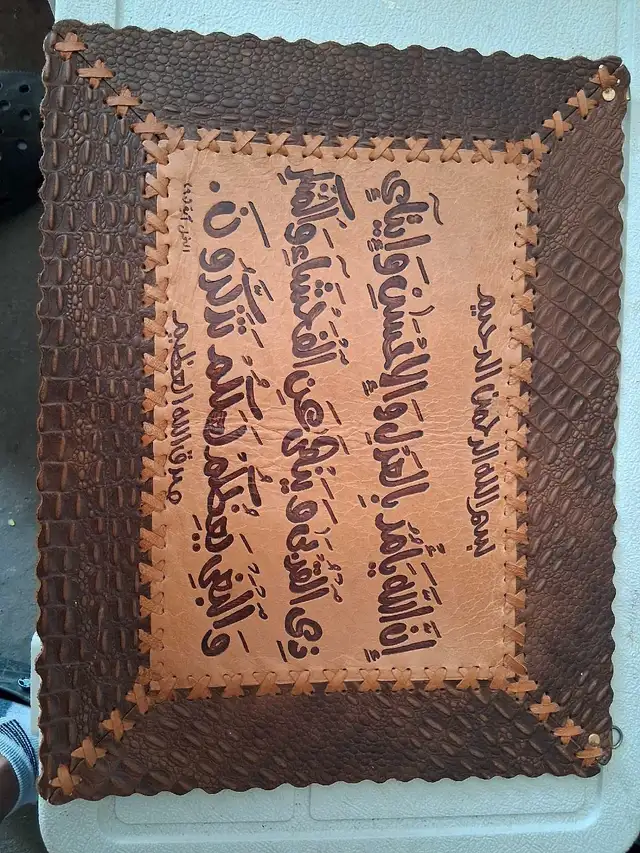 بسم الله الرحمن الرحيم
إِنَّ اللَّهَ يَأْمُرُ بِالْعَدْلِ وَالْإِحْسَٰنِ وَإِيتَآئِ
ذِي الْقُرْبَىٰ وَيَنْهَىٰ عَنِ الْفَحْشَآءِ وَالْمُنْكَرِ
وَالْبَغْيِ يَعِظُكُمْ لَعَلَّكُمْ تَذَكَّرُونَ.
صدق الله العظيم